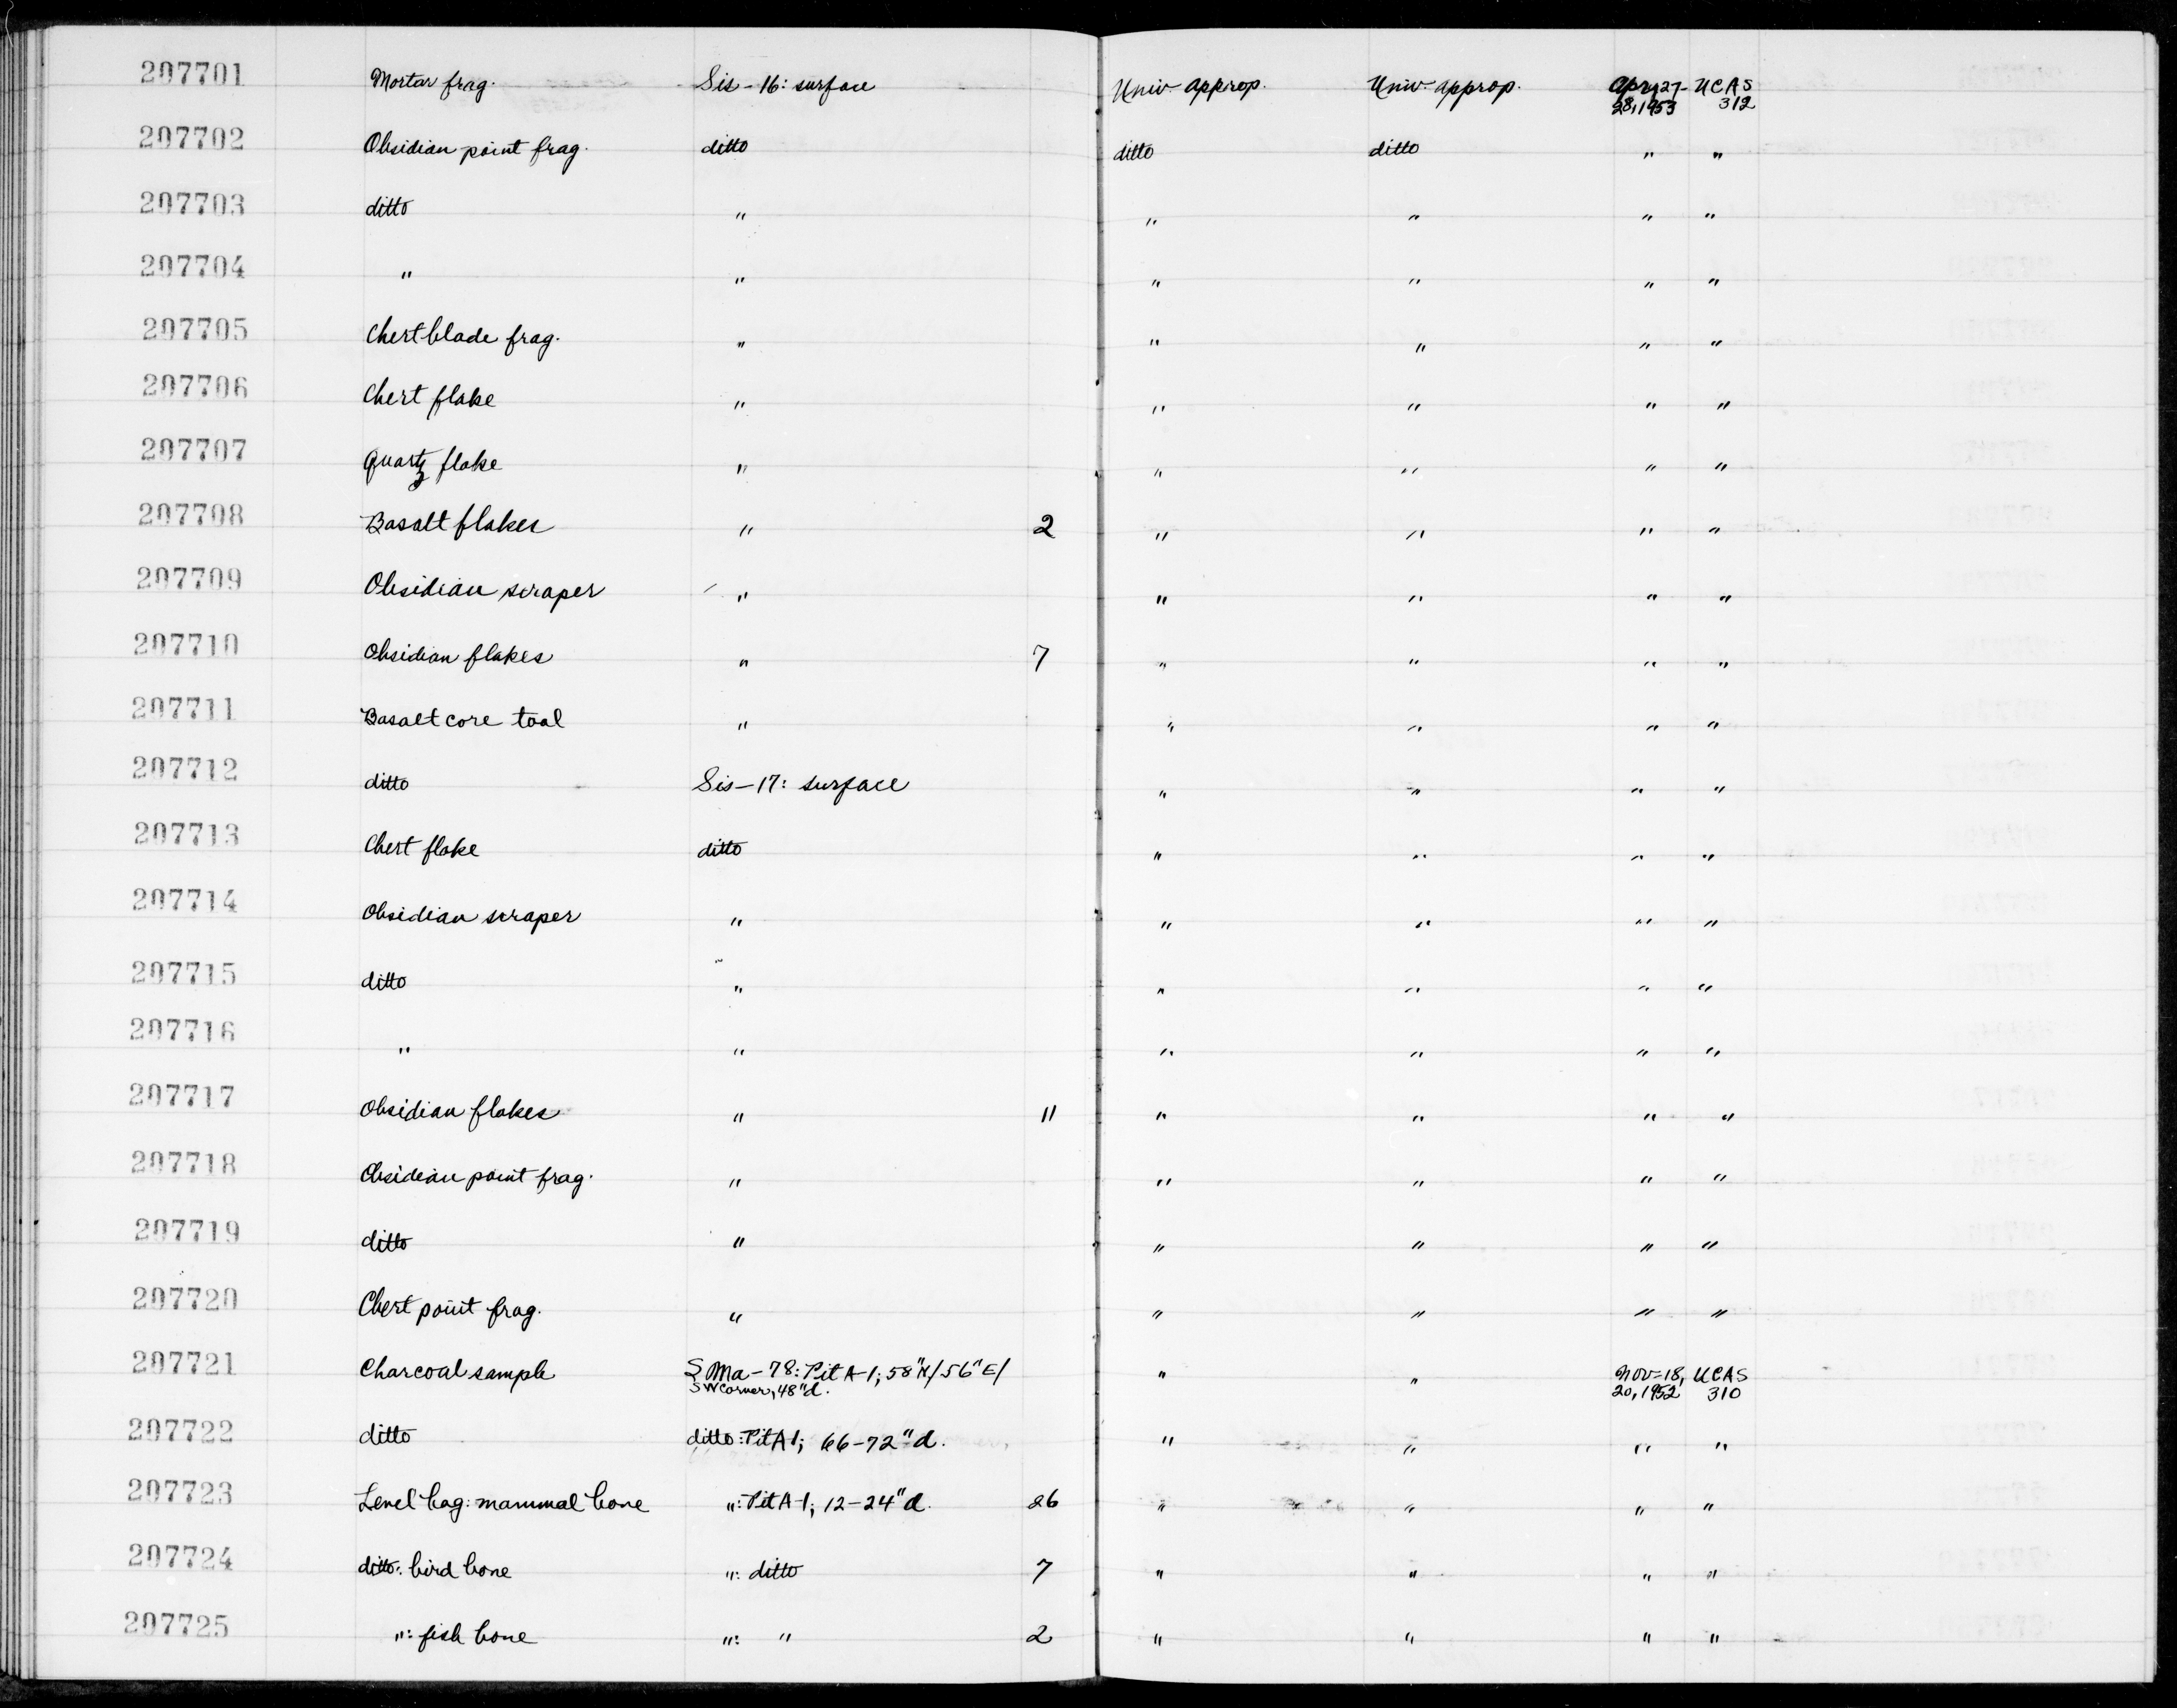 207701 Mortar frag. Sis-16: surface Univ. approp. Univ. approp. Apr. 27- UCAS
28, 1953 312
207702 Obsidian point frag. ditto ditto ditto " "
207703 ditto " " " " "
207704 " " " " " "
207705 Chert blade frag. " " " " "
207706 Chert flake " " " " "
207707 Quartz flake " " " " "
207708 Basalt flakes " 2 " " " "
207709 Obsidian scraper " " " " "
207710 Obsidian flakes " 7 " " " "
207711 Basalt core tool " " " " "
207712 ditto Sis-17: surface " " " "
207713 Chert flake ditto " " " "
207714 Obsidian scraper " " " " "
207715 ditto " " " " "
207716 " " " " " "
207717 Obsidian flakes " 11 " " " "
207718 Obsidian point frag. " " " " "
207719 ditto " " " " "
207720 Chert point frag. " " " " "
207721 Charcoal sample SMa-78: Pit A-1; 58"N/56"E/ " " Nov-18, UCAS
SW corner, 48"d. 20, 1952 310
207722 ditto ditto: Pit A1; 66-72"d. " " " "
207723 Level bag: mammal bone ": Pit A-1; 12-24"d. 26 " " " "
207724 ditto: bird bone ": ditto 7 " " " "
207725 ": fish bone ": " 2 " " " "